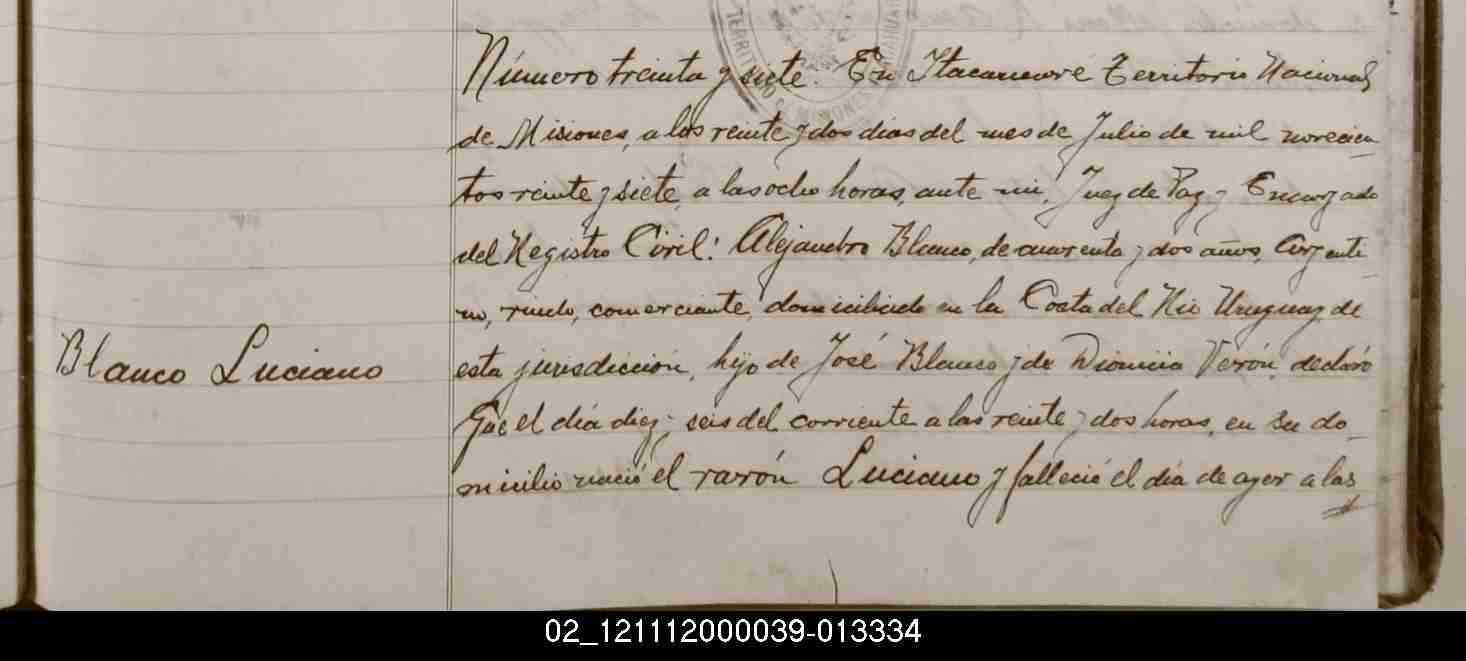 Número treinta y siete. En Itacaruaré Territorio Nacional
de Misiones, a los veinte y dos dias del mes de Julio de mil novecien-
tos veinte y siete, a las ocho horas, ante mi, Juez de Paz y Encargado
del Registro Civil: Alejandro Blanco, de cuarenta y dos años, Argenti-
no, viudo, comerciante, domiciliado en la Costa del Rio Uruguay de
esta jurisdicción, hijo de José Blanco y de Dionicia Verón, declaró
Blanco Luciano
Que el día diez y seis del corriente a las veinte y dos horas, en su do-
micilio nació el varón Luciano y falleció el día de ayer a las
TERRITORIO DE MISIONES
02_121112000039-013334